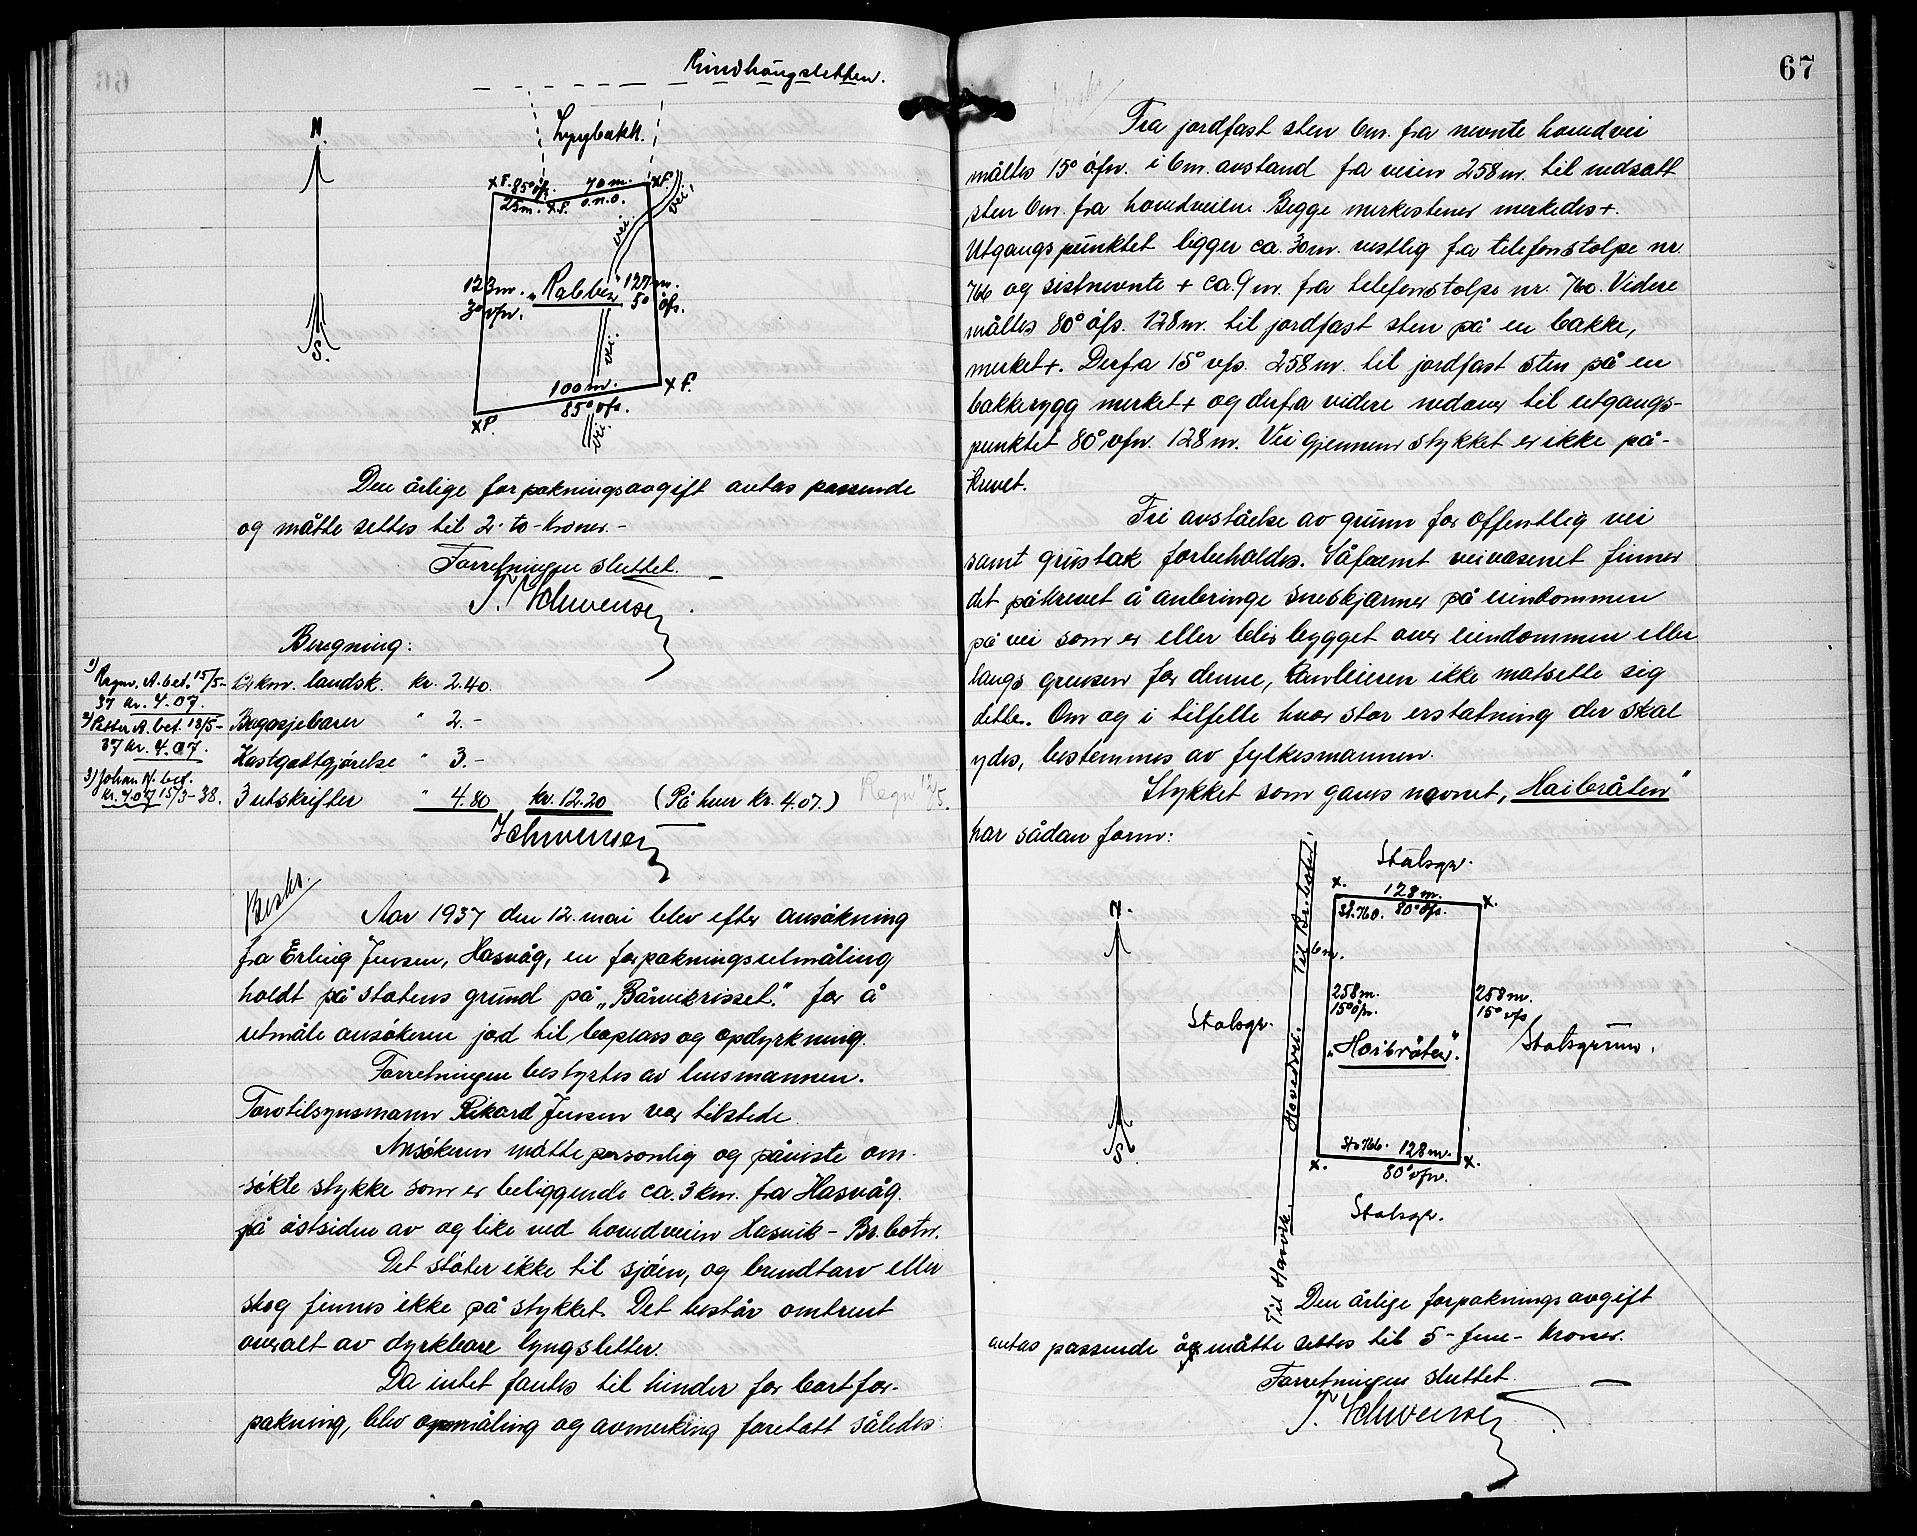 Rindhaugsletten.
Lyngbakk.
N.
XF. 85° öfs. 70 m. XF.
25 m. XF. o.n.o.
vei.
vei.
123 m. "Rabben" 127 m.
3° vfn. 5° öfs.
S.
vei.
100 m. XF.
85° vfs.
XF.
vei.
Den årlige forpakningsavgift antas passende
og måtte settes til 2- to- kroner.-
Forretningen sluttet.
T. Schwensen
Beregning:
1) Ragnv. A. bet. 15/5-
37 kr. 4.07.
12 km. landsk. kr. 2.40.
2) Petter A. bet. 13/5-
37 kr. 4.07.
Bugosjebarer " 2.-
Kostgodtgjørelse " 3.-
3) Johan N. bet.
kr. 4.07 15/3-38.
3 utskrifter " 4.80 kr. 12.20 (På hver kr. 4.07.) Regn 12/5.
Schwensen
Beskr.
Aar 1937 den 12. mai blev efter ansökning
fra Erling Jensen, Hasvåg, en forpakningsutmåling
holdt på statens grund på "Bårvikrisset." for å
utmåle ansökeren jord til boplass og opdyrkning.
Forretningen bestyrtes av lensmannen.
Torvtilsynsmann Rikard Jensen var tilstede.
Ansökeren måtte personlig og påviste om-
sökte stykke som er beliggende ca. 3 km. fra Hasvåg.
på östsiden av og like ved hovedveien Hasvik - Br. botn.
Det støter ikke til sjöen, og brendtorv eller
skog finnes ikke på stykket. Det består omtrent
overalt av dyrkbare lyngsletter.
Da intet fantes til hinder for bortfor-
pakning, blev opmåling og avmerking foretatt således:
67
Fra jordfast sten 6 m. fra nevnte hovedvei
måltes 15° öfn. i 6 m. avstand fra veien 258 m. til nedsatt
sten 6 m. fra hovedveien. Begge merkestener merkedes +.
Utgangspunktet ligger ca. 30 m. vestlig fra telefonstolpe nr.
766 og sistnevnte + ca. 9 m. fra telefonstolpe nr. 760. Videre
måltes 80° öfs. 128 m. til jordfast sten på en bakke,
merket +. Derfra 15° vfs. 258 m. til jordfast sten på en
bakkerygg merket + og derfra videre nedover til utgangs-
punktet 80° vfn. 128 m. Vei gjennem stykket er ikke på-
krevet.
Fri avståelse av grunn for offentlig vei
samt grustak forbeholdes. Såfremt veivesenet finner
det påkrevet å anbringe sneskjermer på eiendommen
på vei som er eller blir bygget over eiendommen eller
langs grensen for denne, kan leieren ikke motsette sig
dette. Om og i tilfelle hvor stor erstatning der skal
ydes, bestemmes av fylkesmannen.
Stykket som gaves navnet, "Haibråten"
har sådan form:
Statsgr.
N.
x. 128 m. x.
St. 760. 80° öfs.
Til Br. botn.
6 m.
258 m. 258 m.
15° öfn. 15° vfs
Statsgr.
"Haibråten".
Statsgrunn.
Hovedvei.
St. 766. 128 m.
x. x.
80° vfn.
S.
Statsgr.
Til Hasvik.
Den årlige forpakningsavgift
antas passende og måtte settes til 5- fem- kroner.
Forretningen sluttet.
T. Schwensen